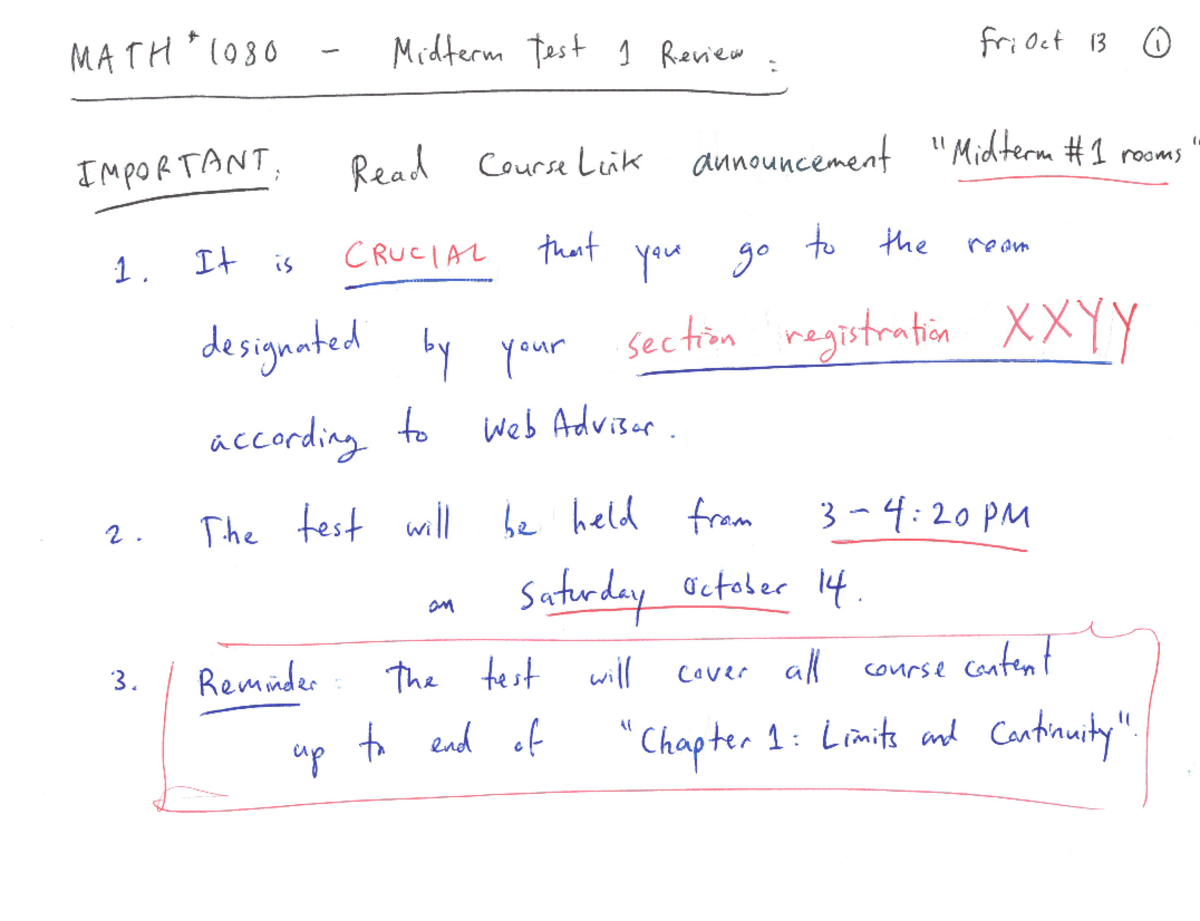 MATH*1080 - Midterm Test 1 Review: Fri Oct 13 ①
IMPORTANT: Read CourseLink announcement "Midterm #1 rooms"
1. It is CRUCIAL that you go to the room
designated by your section registration XXYY
according to WebAdvisor.
2. The test will be held from 3-4:20 PM
on Saturday October 14.
3. Reminder: The test will cover all course content
up to end of "Chapter 1: Limits and Continuity".